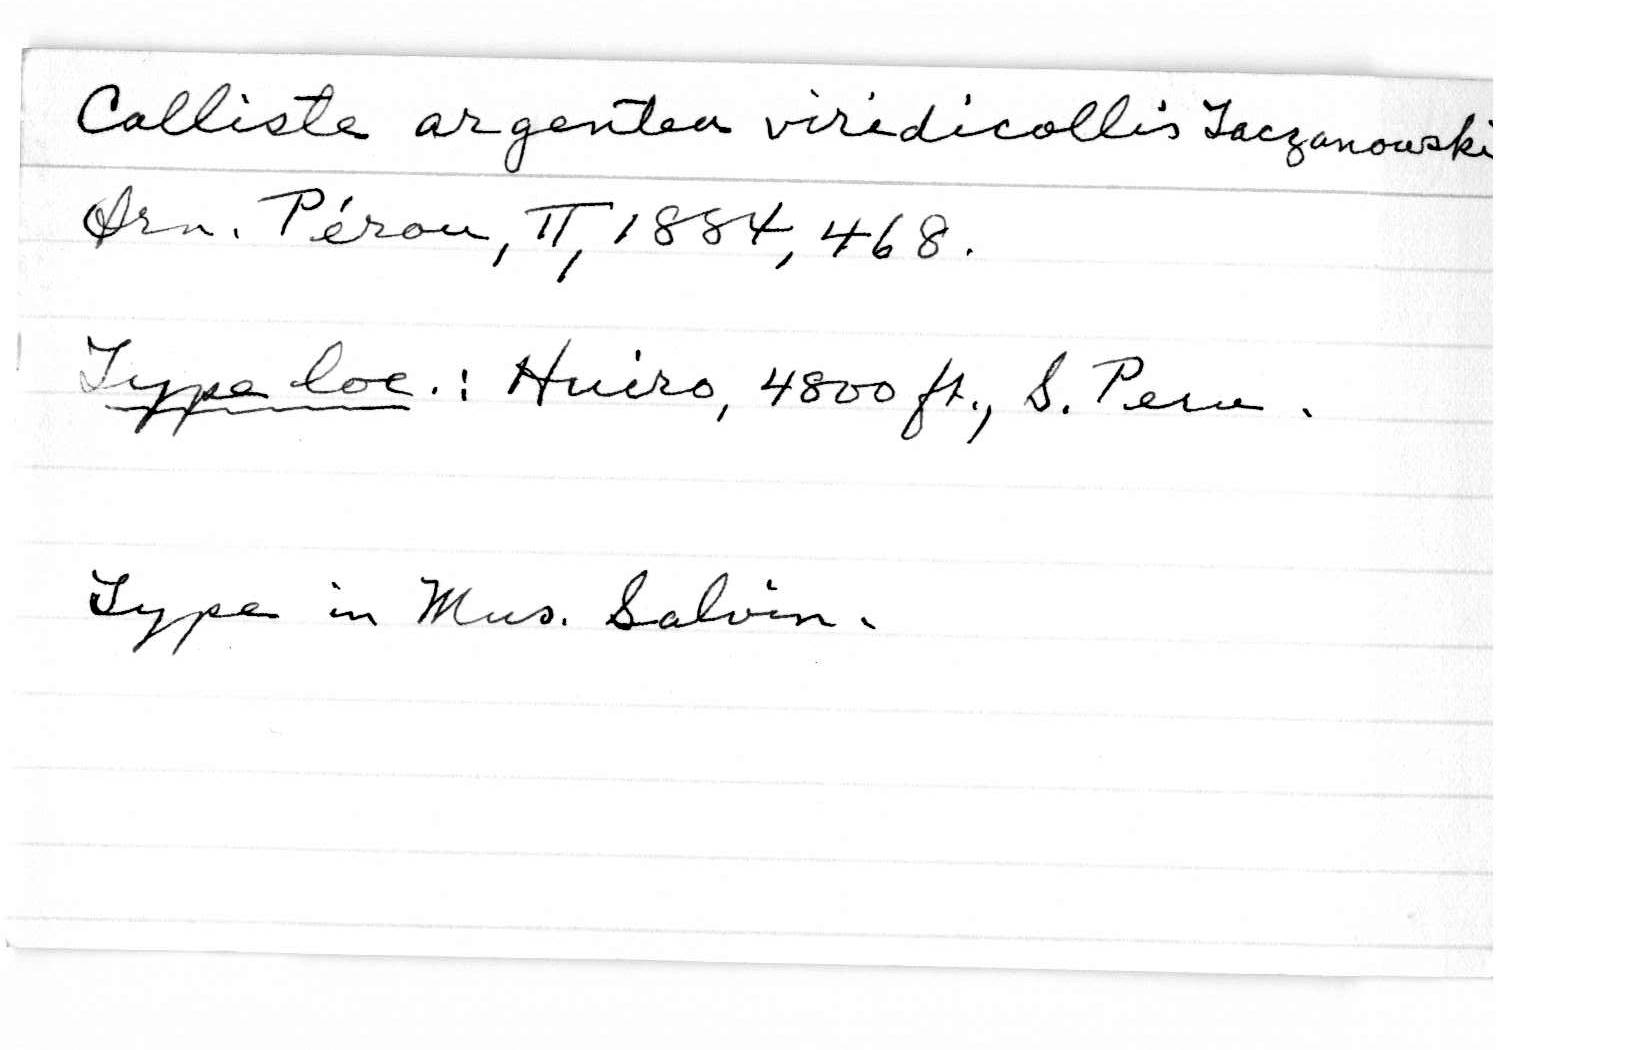 Calliste argentea viridicollis Taczanowski
Orn. Pérou, II, 1884, 468.
Type loc.: Huiro, 4800 ft., S. Peru.
Type in Mus. Salvin.